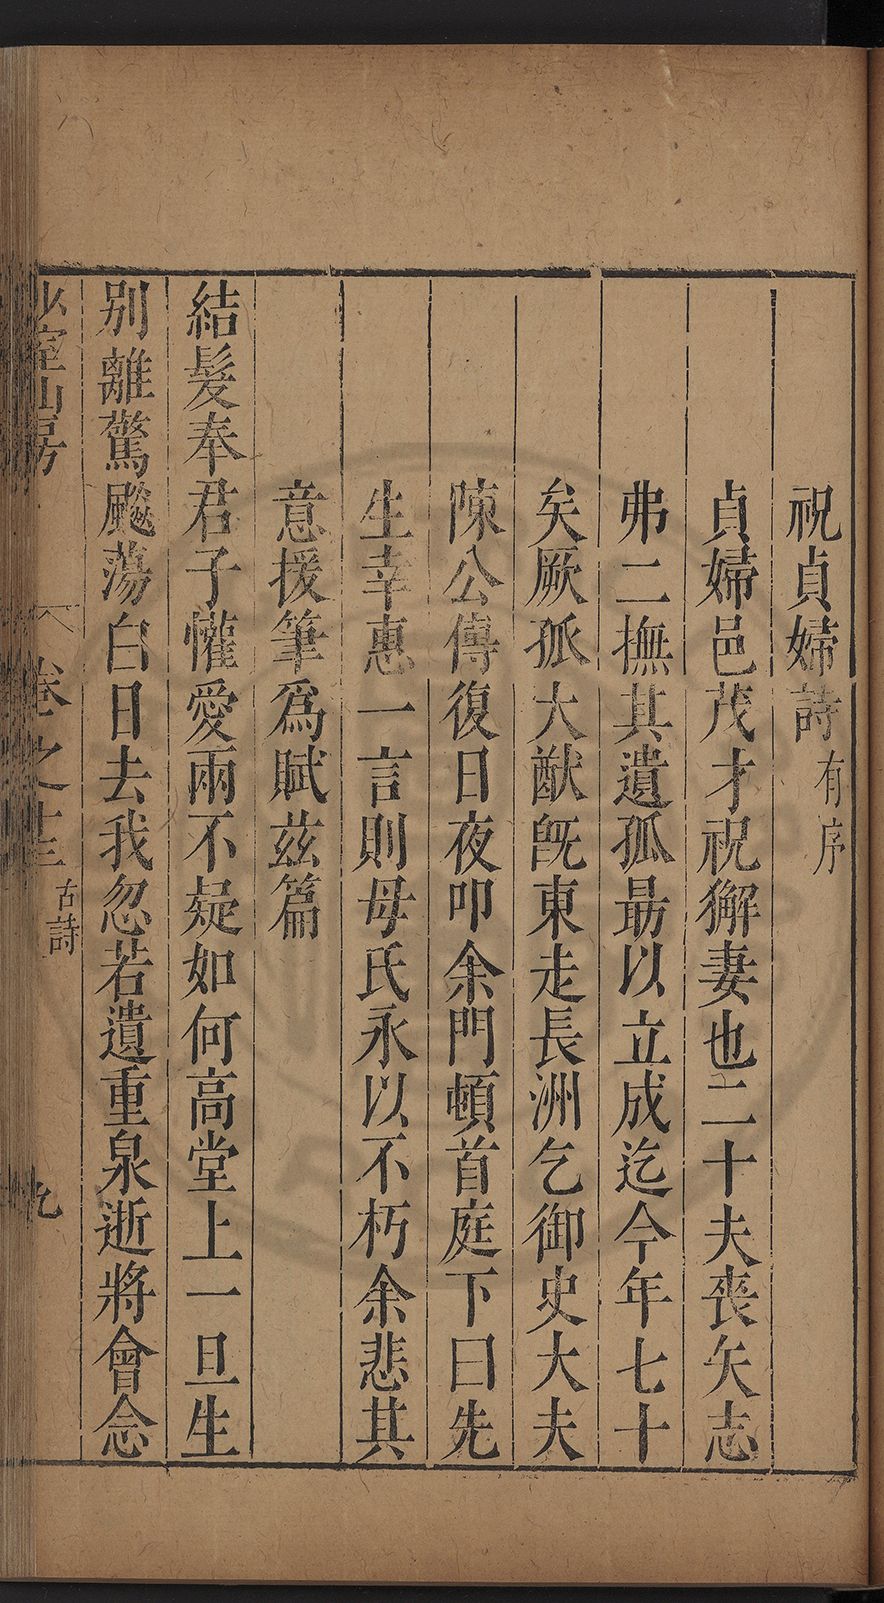 祝貞婦詩有序
貞婦邑茂才祝獬妻也二十夫喪矢志
弗二撫其遺孤最以立成迄今年七十
矣厥孤大猷旣東走長洲乞御史大夫
陳公傳復日夜叩余門頓首庭下曰先
生幸惠一言則母氏永以不朽余悲其
意援筆爲賦茲篇
結髮奉君子懽愛兩不疑如何高堂上一旦生
别離驚飈蕩白日去我忽若遺重泉逝將會念
少室山房 卷之十三 古詩 九